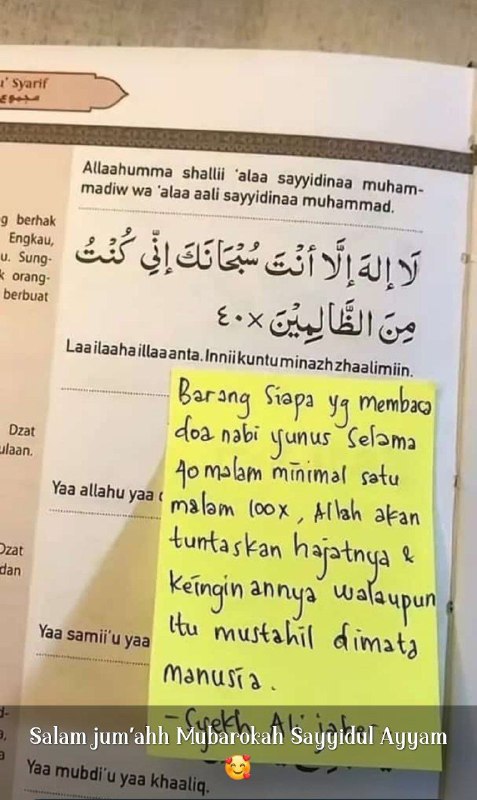 Syarif
Allaahumma shallii 'alaa sayyidinaa muham-
madiw wa 'alaa aali sayyidinaa muhammad.
g berhak
Engkau,
u. Sung-
k orang-
berbuat
لَا إِلٰهَ إِلَّا أَنْتَ سُبْحَانَكَ إِنِّي كُنْتُ
مِنَ الظَّالِمِيْنَ ×٤٠
Laa ilaaha illaa anta. Innii kuntu minazh zhaalimiin.
Barang siapa yg membaca
doa nabi yunus selama
40 malam minimal satu
malam 100x, Allah akan
tuntaskan hajatnya &
keinginannya walaupun
itu mustahil dimata
manusia.
- Syekh Ali jaber
Dzat
ulaan.
Yaa allahu yaa
Dzat
dan
Yaa samii'u yaa
Salam jum'ahh Mubarokah Sayyidul Ayyam
🥰
Yaa mubdi'u yaa khaaliq.